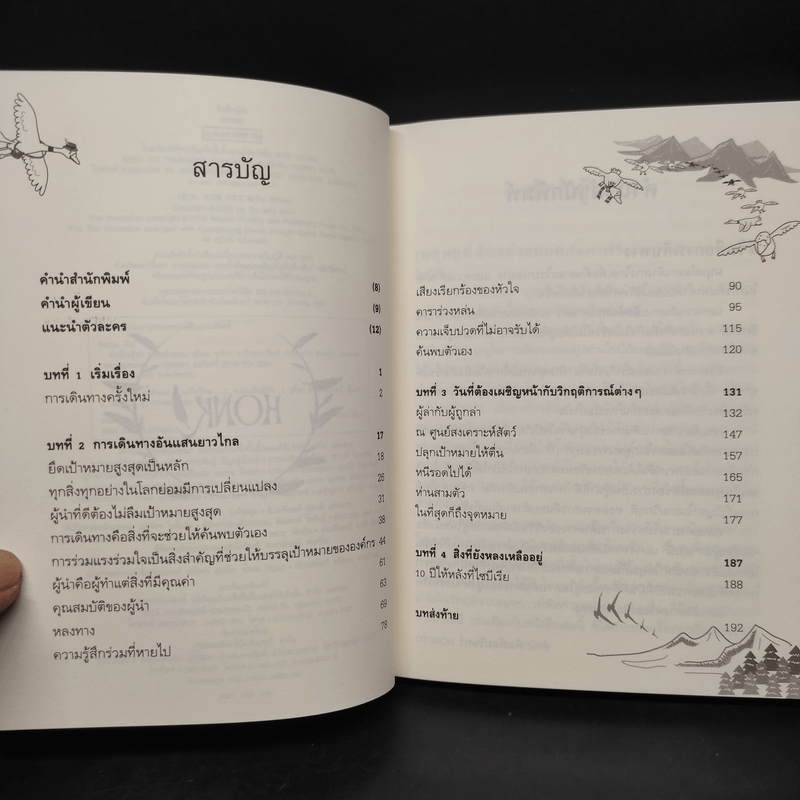 สารบัญ
คำนำสำนักพิมพ์ (8)
คำนำผู้เขียน (9)
แนะนำตัวละคร (12)
บทที่ 1 เริ่มเรื่อง 1
การเดินทางครั้งใหม่ 2
บทที่ 2 การเดินทางอันแสนยาวไกล 17
ยึดเป้าหมายสูงสุดเป็นหลัก 18
ทุกสิ่งทุกอย่างในโลกย่อมมีการเปลี่ยนแปลง 26
ผู้นำที่ดีต้องไม่ลืมเป้าหมายสูงสุด 31
การเดินทางคือสิ่งที่จะช่วยให้ค้นพบตัวเอง 38
การร่วมแรงร่วมใจเป็นสิ่งสำคัญที่ช่วยให้บรรลุเป้าหมายขององค์กร 44
ผู้นำคือผู้ทำแต่สิ่งที่มีคุณค่า 61
คุณสมบัติของผู้นำ 63
หลงทาง 69
ความรู้สึกร่วมที่หายไป 78
เสียงเรียกร้องของหัวใจ 90
คาราร่วงหล่น 95
ความเจ็บปวดที่ไม่อาจรับได้ 115
ค้นพบตัวเอง 120
บทที่ 3 วันที่ต้องเผชิญหน้ากับวิกฤติการณ์ต่างๆ 131
ผู้ล่ากับผู้ถูกล่า 132
ณ ศูนย์สงเคราะห์สัตว์ 147
ปลุกเป้าหมายให้ตื่น 157
หนีรอดไปได้ 165
ห่านสามตัว 171
ในที่สุดก็ถึงจุดหมาย 177
บทที่ 4 สิ่งที่ยังหลงเหลืออยู่ 187
10 ปีให้หลังที่ไซบีเรีย 188
บทส่งท้าย 192
HONK